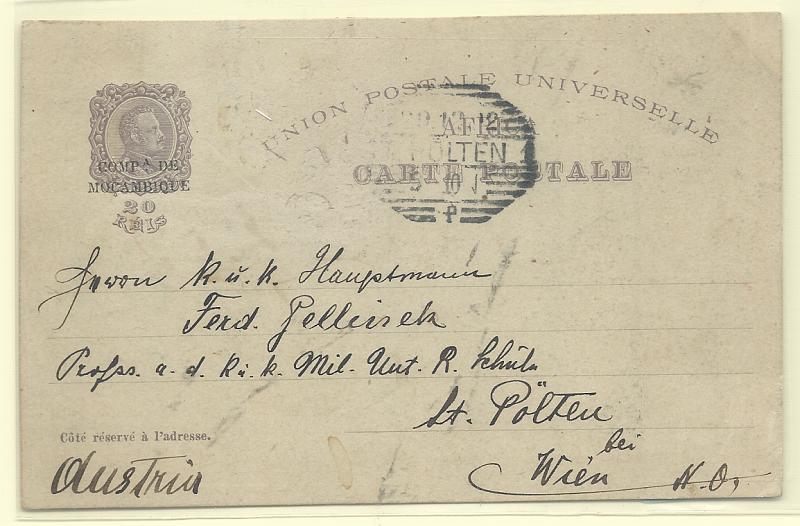 UNION POSTALE UNIVERSELLE
AFRICA
CARTE POSTALE
COMPA. DE
MOÇAMBIQUE
20
REIS
PÖLTEN
10
P
Herrn k. u. k. Hauptmann
Ferd.
Profss. a. d. k. u. k. Mil. Unt. R. Schule
St. Pölten
bei
Wien N.Ö.
Côté réservé à l'adresse.
Austria